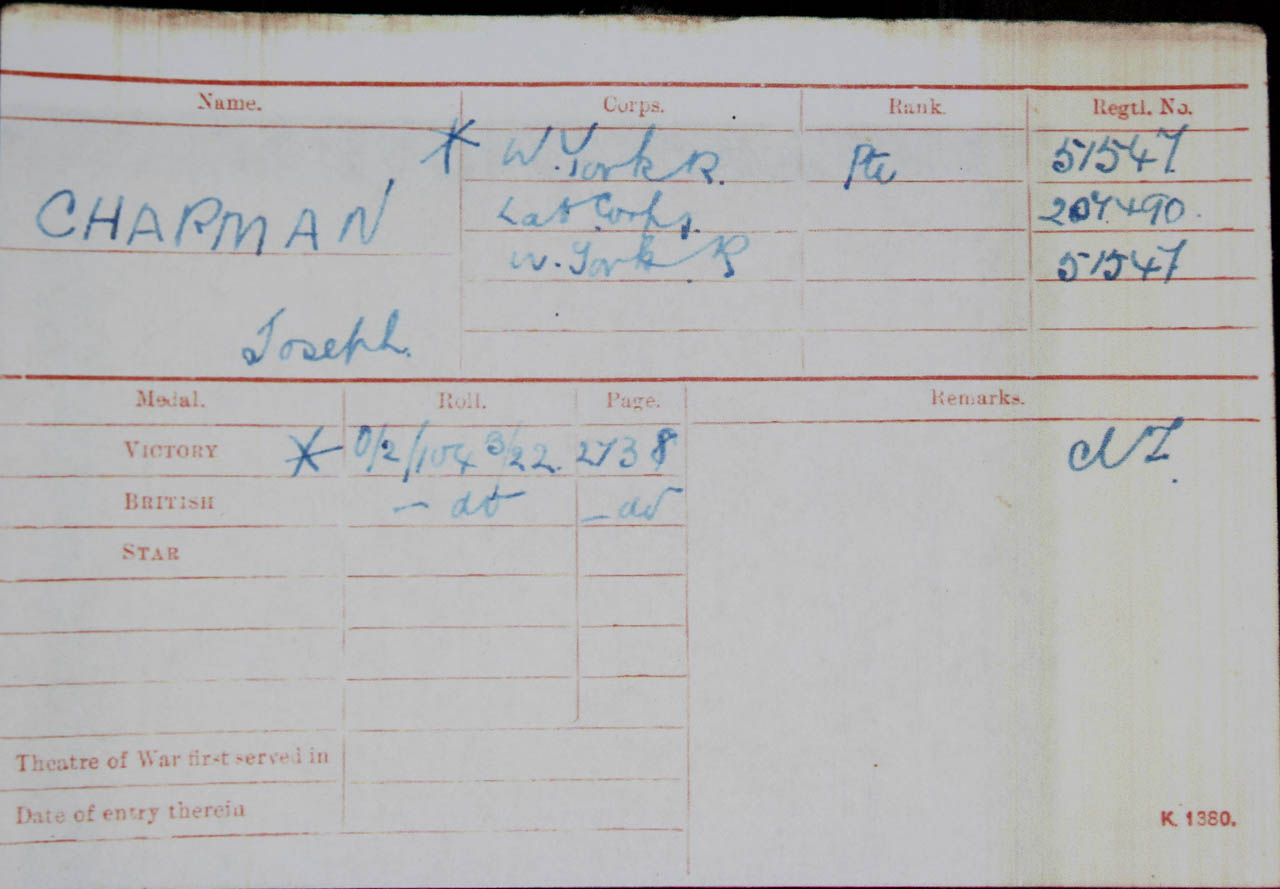 Name. Corps. Rank. Regtl. No.
* W. York R. Pte 51547
CHAPMAN Lab Corps. 207490.
W. York R 51547
Joseph.
Medal. Roll. Page. Remarks.
VICTORY * O/2/104 B/22. 2738
BRITISH — do — do
STAR
Theatre of War first served in
Date of entry therein
K. 1380.